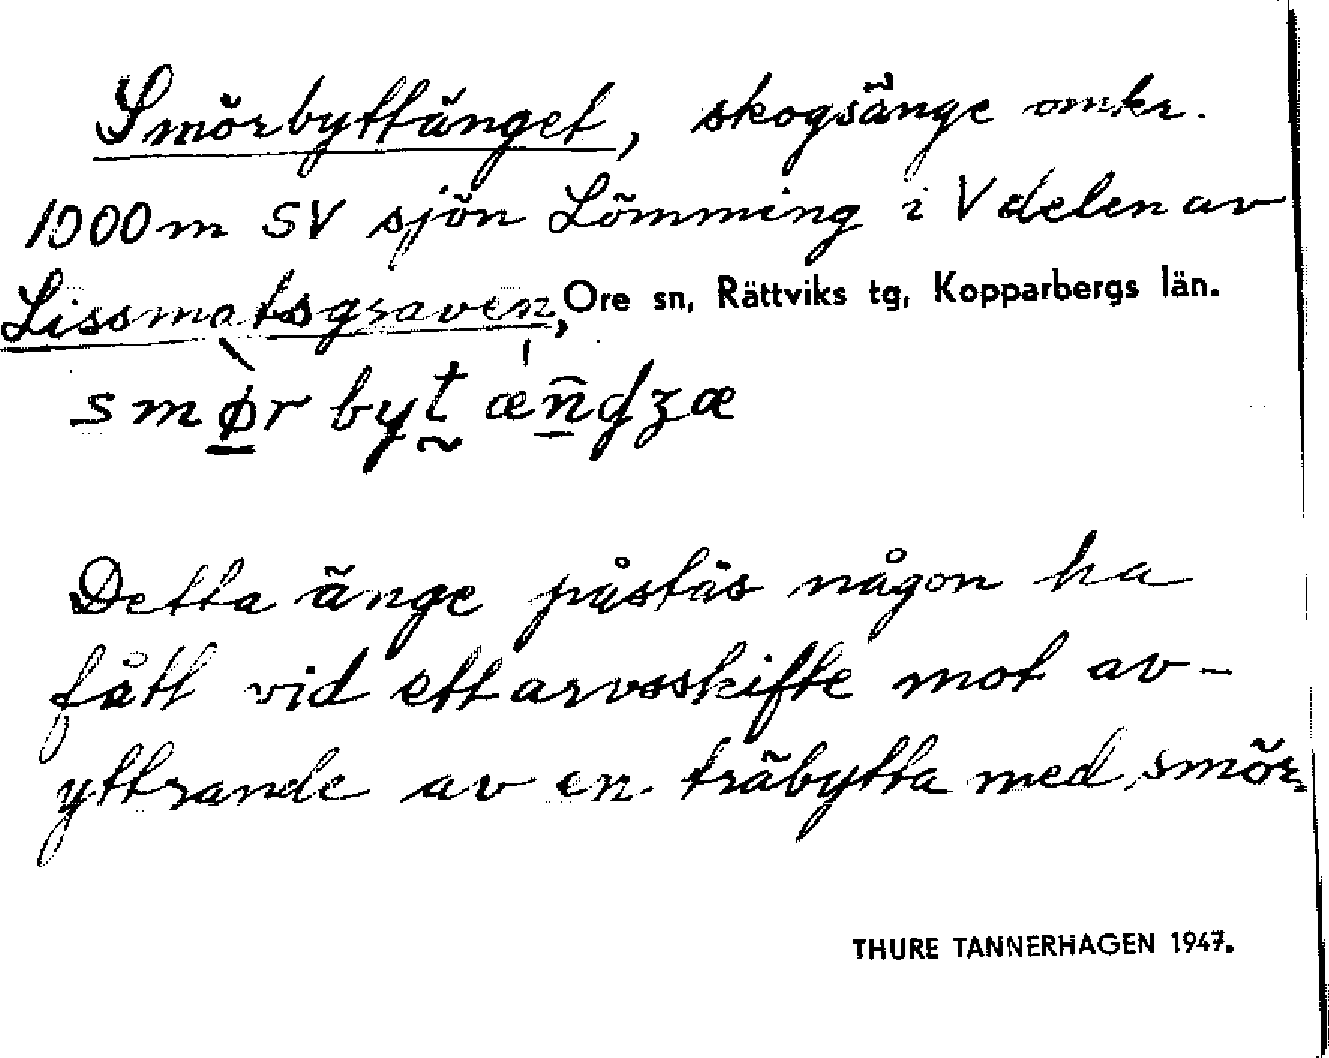 Smörbyttänget, skogsänge omkr.
1000 m SV sjön Lömming i V delen av
Lissmatsgraven, Ore sn, Rättviks tg, Kopparbergs län.
smø̀rbyt ǽndzæ
Detta änge påstås någon ha
fått vid ett arvsskifte mot av-
yttrande av en träbytta med smör.
THURE TANNERHAGEN 1947.